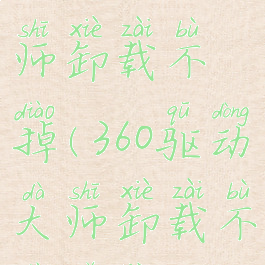 shī xiè zài bù
师卸载不
diào qū dòng
掉(360驱动
dà shī xiè zài bù
大师卸载不